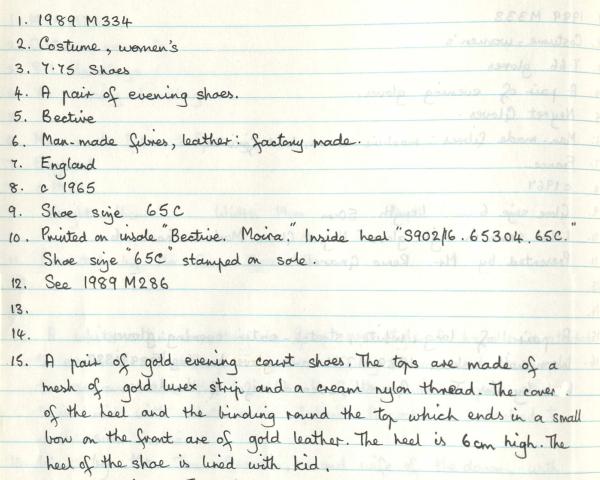 1. 1989 M334
2. Costume, women's
3. 7.75 Shoes
4. A pair of evening shoes.
5. Bective
6. Man-made fibres, leather: factory made.
7. England
8. c 1965
9. Shoe size 65C
10. Printed on insole "Bective. Moira." Inside heel "S902/16. 65304. 65C."
Shoe size "65C" stamped on sole.
12. See 1989 M286
13.
14.
15. A pair of gold evening court shoes. The tops are made of a
mesh of gold lurex strip and a cream nylon thread. The cover
of the heel and the binding round the top which ends in a small
bow on the front are of gold leather. The heel is 6cm high. The
heel of the shoe is lined with kid.